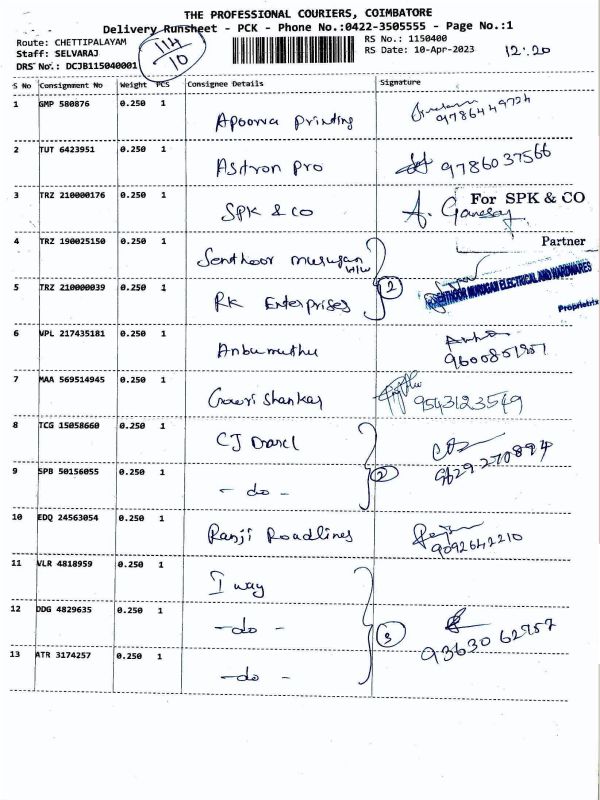 THE PROFESSIONAL COURIERS, COIMBATORE
Delivery Runsheet - PCK - Phone No.:0422-3505555 - Page No.:1
Route: CHETTIPALAYAM 114/10 RS No.: 1150400
Staff: SELVARAJ RS Date: 10-Apr-2023 12:20
DRS No.: DCJB115040001
S No Consignment No Weight PCS Consignee Details Signature
1 GMP 580876 0.250 1 Apoorva printing 9786449724
2 TUT 6423951 0.250 1 Asitron pro 9786037566
3 TRZ 210000176 0.250 1 SPK & CO A. Ganesay For SPK & CO
Partner
4 TRZ 190025150 0.250 1 Senthoor murugan H/W
5 TRZ 210000039 0.250 1 RK Enterprises 2 SENTHOOR MURUGAN ELECTRICAL AND HARDWARES
Proprietrix
6 VPL 217435181 0.250 1 Anbumuthu 9600851951
7 MAA 569514945 0.250 1 Gowri Shankar 9543123549
8 TCG 15058660 0.250 1 CJ 9629270894
9 SPB 50156055 0.250 1 - do - 2
10 EDQ 24563054 0.250 1 Ranji Roadlines 9092642210
11 VLR 4818959 0.250 1 I way
12 DDG 4829635 0.250 1 - do - 3 9363062957
13 ATR 3174257 0.250 1 - do -